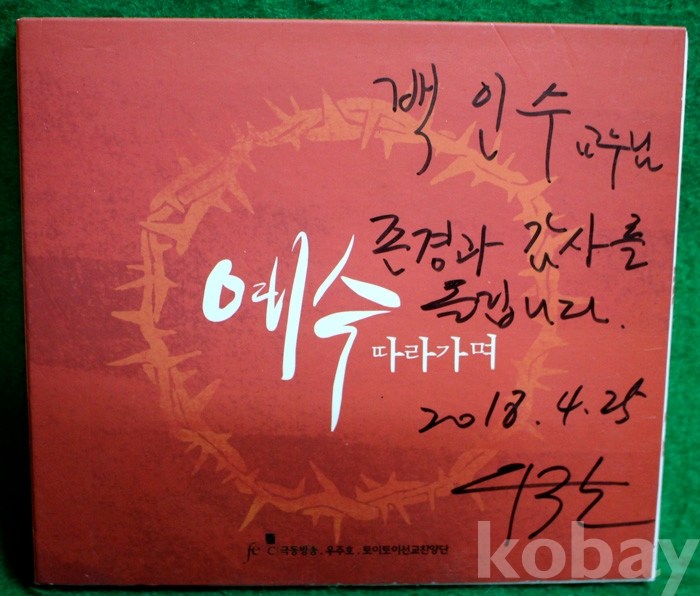 백 인 수 교수님
존경과 감사를
드립니다.
예수
따라가며
2018.4.25
극동방송 . 우주호 . 토이토이선교찬양단
kobay